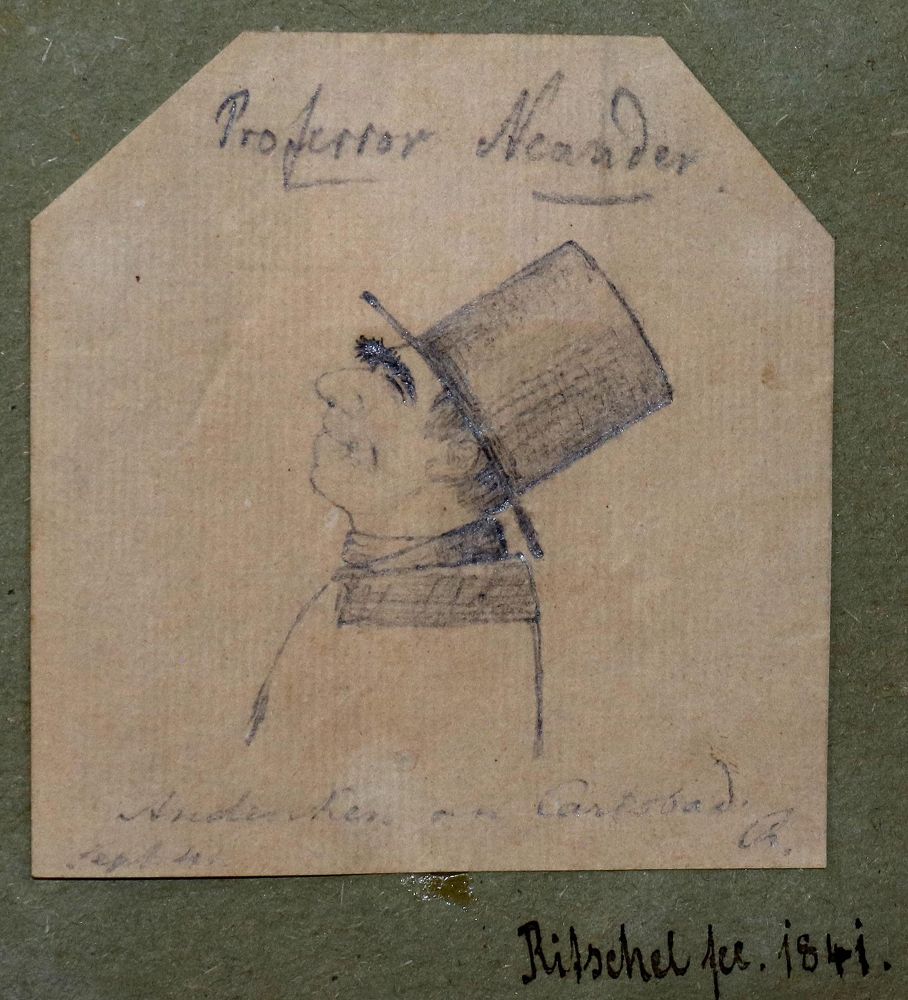 Professor Neander.
Andenken an Carlsbad.
Sept 41.
Ritschel fec. 1841.